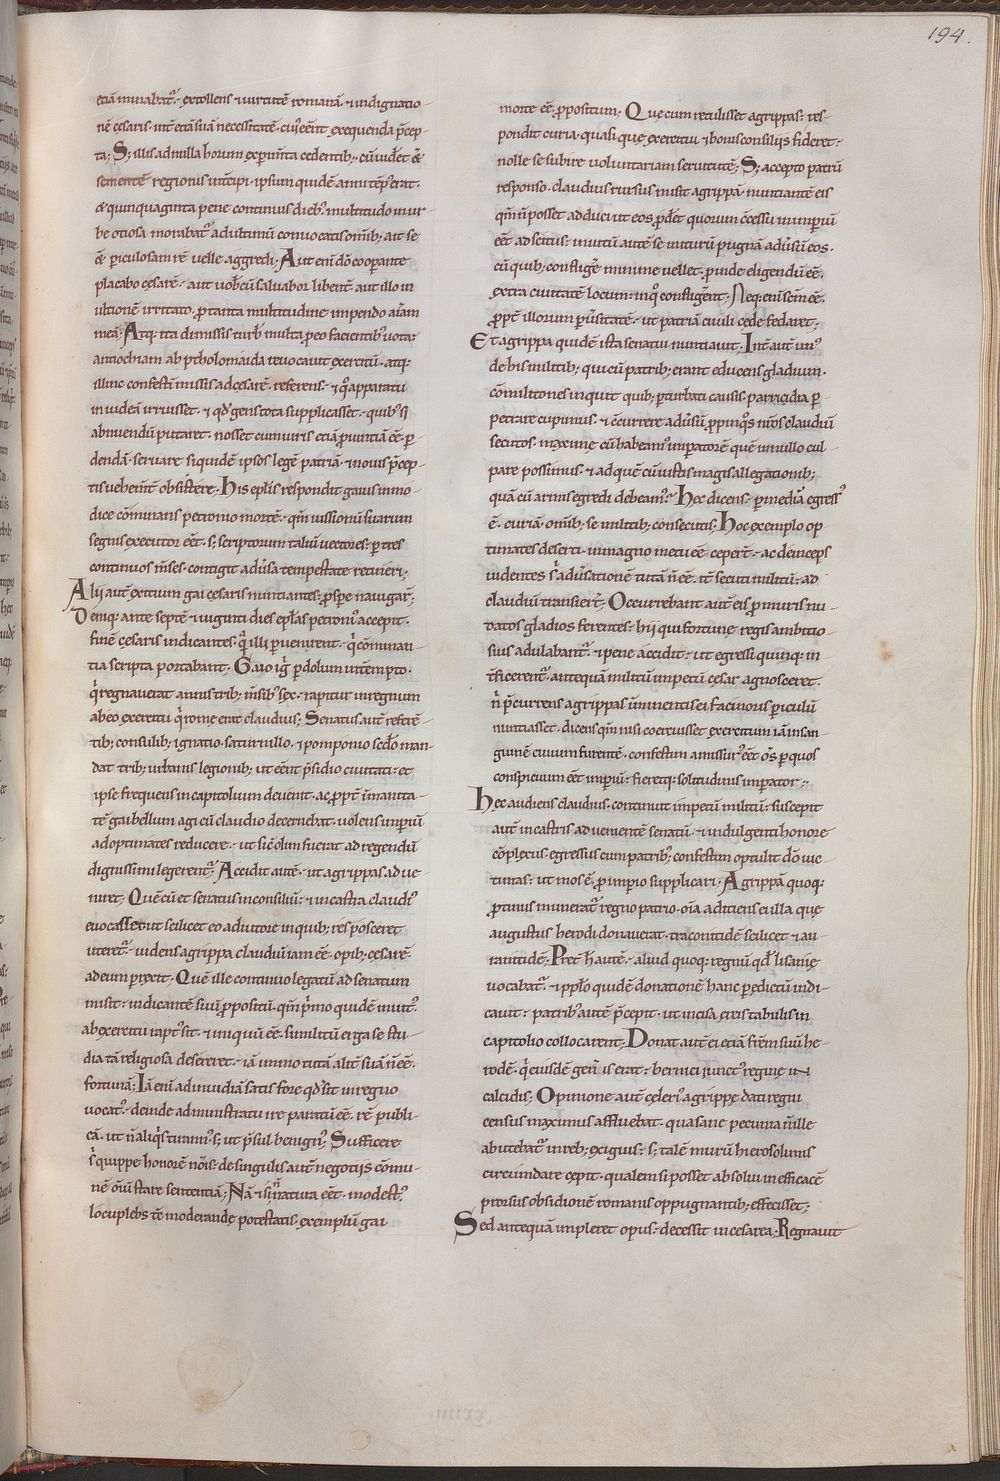 194.
etiā mirabat᷑. extollens ⁊ uirtutē romanā. ⁊ indignatio
nē cęsaris. int̄ etiā suā necessitatē. cui eēnt exequenda p̄cep
ta; S; illis ad nulla horum expim̄ta cedentib;. cū uideret &
sementē regionis
& quinquaginta pene continuis dieb; multitudo in ur
be otiosa morabat᷑ ad ultimū conuocatis om̄ib; ait se
ē. periculosam rē uelle aggredi; Aut eni dō cooperante
placabo cęsarē. aut uob̄cū saluabor libent̄. aut illo in
ultionē irritato. p̄ tanta multitudine impendo aīam
meā; Atq; ita dimissis turb̄ multa p̄ eo facientib; uota.
antiochiam ab ptholomaida reuocauit exercitū. atq;
illinc confestī missis ad cęsarē. referens. ⁊ q̊ apparatu
in iudeā irruisset. ⁊ qd̄ gens tota supplicasset. quib; si
abnuendū putaret. nosset cum uiris etiā p̄uintiā eē p̱
dendā. seruare siquidē ipsos legē patriā. ⁊ nouis p̄cep
tis uehem̄t obsistere; His ep̄lis respondit gaius inmo
dice cōminans petronio mortē. qm̄ iussionū suarum
segnis executor eēt. s; scriptorum talium uectores. p̱ tres
continuos m̄ses. contigit aduersa tempestate retineri;
Alii aut̄ exitium gai cęsaris nuntiantes. p̄spere nauigar̄;
Deniq; ante septē ⁊ uiginti dies ep̄las petroni accepit.
finē cęsaris indicantes. q̄ illi peruenirent. q̄ cōminan
tia scripta portabant; Gaio igi᷑ p̱ dolum intempto.
q̄ regnauerat annis trib; m̄sib; sex. rapitur in regnum
ab eo exercitu q̄ romę erat claudius; Senatus aut̄ referē
tib; consulib; ignatio saturnillo. ⁊ pomponio secd̄o man
dat trib; urbanis legionib; ut eēnt p̄sidio ciuitati. et
ipse frequens in capitolium deuenit. ac p̄pt̄ inmanita
tē gai bellum agi cū claudio decernebat. uolens imperiū
ad optimates reducere. ut sic̄ olim fuerat ad regendū
dignissimi legerent᷑; Accidit autē. ut agrippas adue
niret; Quē cū et senatus in consiliū. ⁊ in castra claudi;
euocasset ut scilicet eo adiutore in quib; res posceret
uteret᷑. uidens agrippa claudiū iam eē. opib; cęsarē.
ad eum p̱rexit; Quē ille continuo legatū ad senatum
misit. indicantē suū p̄positū. qm̄ p̄mo quidē inuit;
ab exercitu rapt; sit. ⁊ iniquū eē. si militū erga se stu
dia tā religiosa desereret. iā immo tutā alit̄ suā n̄ eē.
fortunā; Iā enī ad inuidiā satis fore qd̄ sit in regno
uocat;. deinde administraturū se paratū eē. rē publi
cā. ut n̄ aliq̄s tirann;. s; ut p̄sul benign;; Sufficere
s̄ quippe honorē nōis. de singulis aut̄ negotijs cōmu
nē om̄iū stare sententiā; Nā ⁊ si n̄ natura eēt. modest;
locuples tē moderandę potestatis exemplū gai
morte eē. p̄positum; Quę cum retulisset agrippas. res
pondit curia. quasi quę exercitui ⁊ bonis consiliis fideret.
nolle se subire uoluntariam seruitutē; S; accepto patrū
responso. claudius rursus misit agrippā. nuntiantē eis
qm̄ n̄ posset adduci ut eos p̱det quorum cc̄essu in imperiū
eēt adscitus. inuitū autē se initurū pugnā aduersū eos.
cū quib; confligere minime uellet. p̱inde eligendū eē.
extra ciuitatē locum. in q̊ confligerent; Neq; eni sem eē.
p̄pt̄ illorum peruersitatē. ut patriā ciuili cęde fedaret;
Et agrippa quidē ista senatui nuntiauit; Int̄ aut̄ un;
de his militib; qui cū patrib; erant educens gladium.
cōmilitones inquit quib; p̱turbati causis. parricidia p̱
petrare cupimus. ⁊ incurrere aduersū p̄pinq̊s nr̄os claudiū
secutos. maxime cū habeam; imperatorē quē in nullo cul
pare possimus. ⁊ ad quē cū iustis magis allegationib;
quā cū armis egredi debeam;; Hęc dicens. p̱ mediā egress;
ē. curiā. omib; se militib; consecutis; Hoc exemplo op
timates deserti. in magno metu eē cepert̄. ac deinceps
uidentes s̄ aduersationē tutā n̄ eē. iter secuti militū. ad
claudiū transiert̄; Occurrebant aut̄ eis p̄ muris nu
datos gladios ferentes. hij qui fortunę regis ambitio
sius adulabant᷑. ⁊ pene accidit. ut egressi quinq; in
t̄ficerent᷑. antequā militū impetū cęsar agnosceret.
n̄ p̄currens agrippas imminentis ei facinoris periculū
nuntiasset. dicens qm̄ nisi coercuisset exercitum iā in san
guinē ciuium furentē. confestim amissur; eēt om̄s p̱ quos
conspicuum eēt imperiū. fieretq; solitudinis imperator;
Hęc audiens claudius. continuit impetū militū. suscepit
aut̄ in castris aduenientē senatū. ⁊ indulgenti honore
cōplexus. egressus cum patrib; confestim optulit dō uic
timas. ut mos ē. p̄ imperio supplicari; Agrippā quoq;
p̄tinus munerat᷑ regno patrio. oīa aditiens ei illa quę
augustus herodi donauerat. traconitidē scilicet ⁊ au
ranitidē; Pret̄ h̄ autē. aliud quoq; regnū qd̄ lisanię
uocabat᷑. ⁊ pp̄lo quidē donationē hanc p̱ edictū indi
cauit. patrib; autē p̄cepit. ut incisa ęreis tabulis in
capitolio collocarent; Donat aut̄ ei etiā frēm suū he
rodē. q̄ eiusdē gener is erat. bernici iunct; reginę in
calcidis; Opinione aut̄ celeri; agrippę dati regni
census maximus affluebat. qua sane pecunia n̄ ille
abutebat᷑ in reb; exiguis. s; talē murū hierosolimis
circumdare cępit. qualem si posset absolui inefficacē
prorsus obsidionē romanis oppugnantib; effecisset;
Sed antequā impleret opus. decessit in cesarea; Regnauit